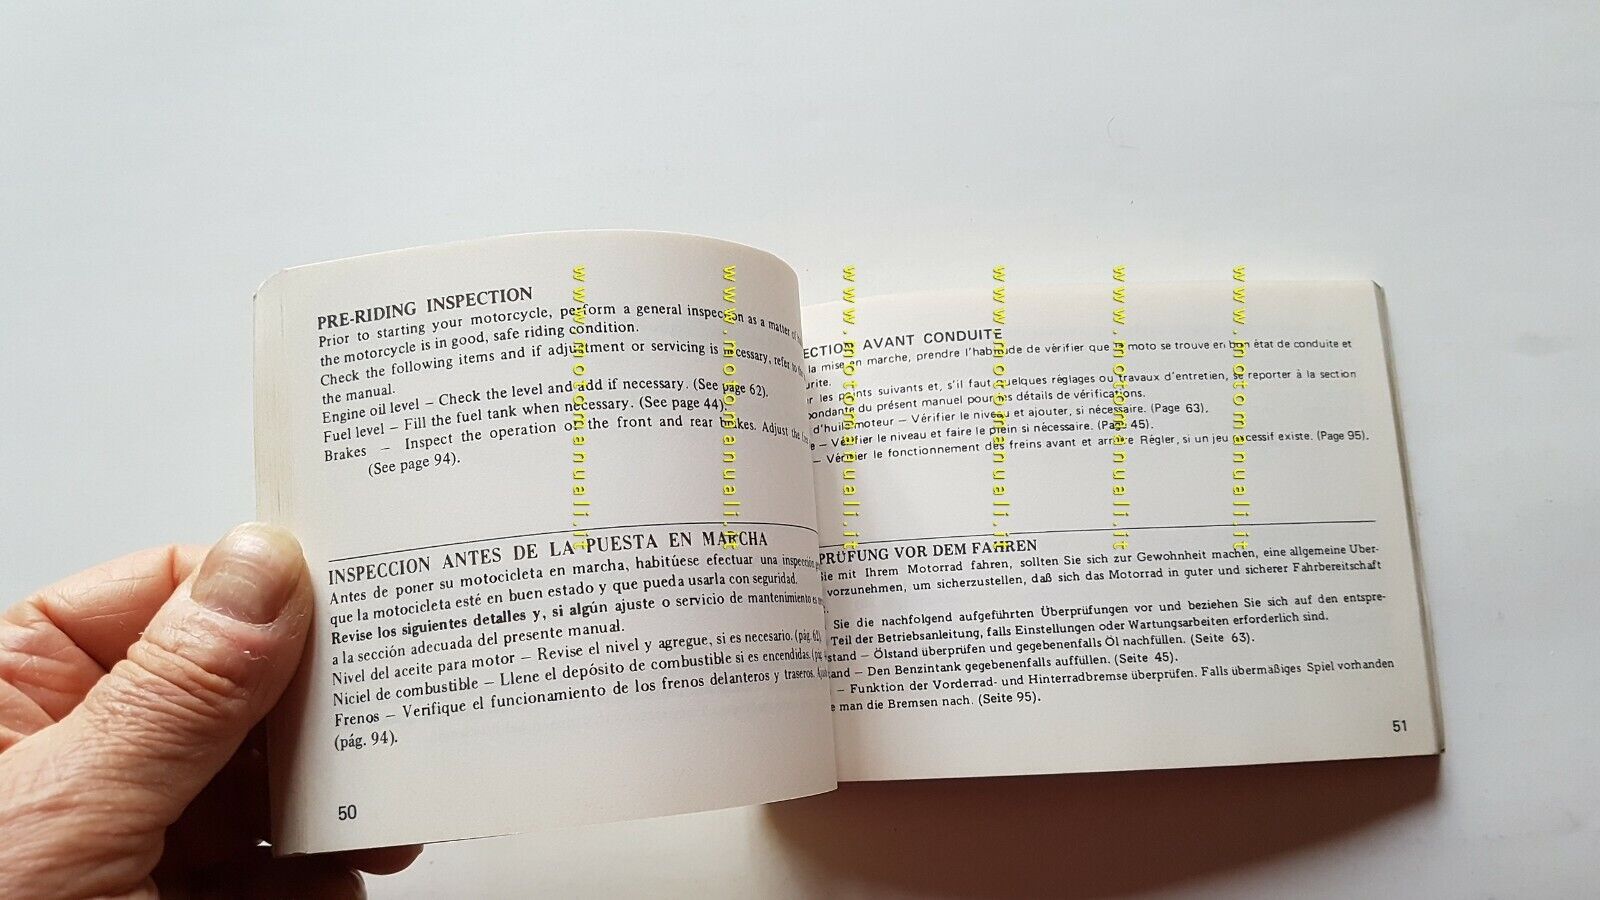 PRE-RIDING INSPECTION
Prior to starting your motorcycle, perform a general inspection as a matter of
the motorcycle is in good, safe riding condition.
Check the following items and if adjustment or servicing is necessary, refer to
the manual.
Engine oil level – Check the level and add if necessary. (See page 62).
Fuel level – Fill the fuel tank when necessary. (See page 44).
Brakes – Inspect the operation of the front and rear brakes. Adjust the
(See page 94).
INSPECCION ANTES DE LA PUESTA EN MARCHA
Antes de poner su motocicleta en marcha, habitúese efectuar una inspección
que la motocicleta esté en buen estado y que pueda usarla con seguridad.
Revise los siguientes detalles y, si algún ajuste o servicio de mantenimiento es
a la sección adecuada del presente manual.
Nivel del aceite para motor – Revise el nivel y agregue, si es necesario. (pág. 62)
Niciel de combustible – Llene el depósito de combustible si es encendidas.
Frenos – Verifique el funcionamiento de los frenos delanteros y traseros.
(pág. 94).
50
ECTION AVANT CONDUITE
la mise en marche, prendre l'habitude de vérifier que la moto se trouve en bon état de conduite et
urite.
r les points suivants et, s'il faut quelques réglages ou travaux d'entretien, se reporter à la section
pondante du présent manuel pour les détails de vérifications.
d'huile moteur – Vérifier le niveau et ajouter, si nécessaire. (Page 63).
e – Vérifier le niveau et faire le plein si nécessaire. (Page 45).
– Vérifier le fonctionnement des freins avant et arrière Régler, si un jeu excessif existe. (Page 95).
PRÜFUNG VOR DEM FAHREN
Sie mit Ihrem Motorrad fahren, sollten Sie sich zur Gewohnheit machen, eine allgemeine Über-
vorzunehmen, um sicherzustellen, daß sich das Motorrad in guter und sicherer Fahrbereitschaft
Sie die nachfolgend aufgeführten Überprüfungen vor und beziehen Sie sich auf den entspre-
Teil der Betriebsanleitung, falls Einstellungen oder Wartungsarbeiten erforderlich sind.
stand – Ölstand überprüfen und gegebenenfalls Öl nachfüllen. (Seite 63).
and – Den Benzintank gegebenenfalls auffüllen. (Seite 45).
– Funktion der Vorderrad- und Hinterradbremse überprüfen. Falls übermäßiges Spiel vorhanden
e man die Bremsen nach. (Seite 95).
51
www.motomanuali.it
www.motomanuali.it
www.motomanuali.it
www.motomanuali.it
www.motomanuali.it
www.motomanuali.it